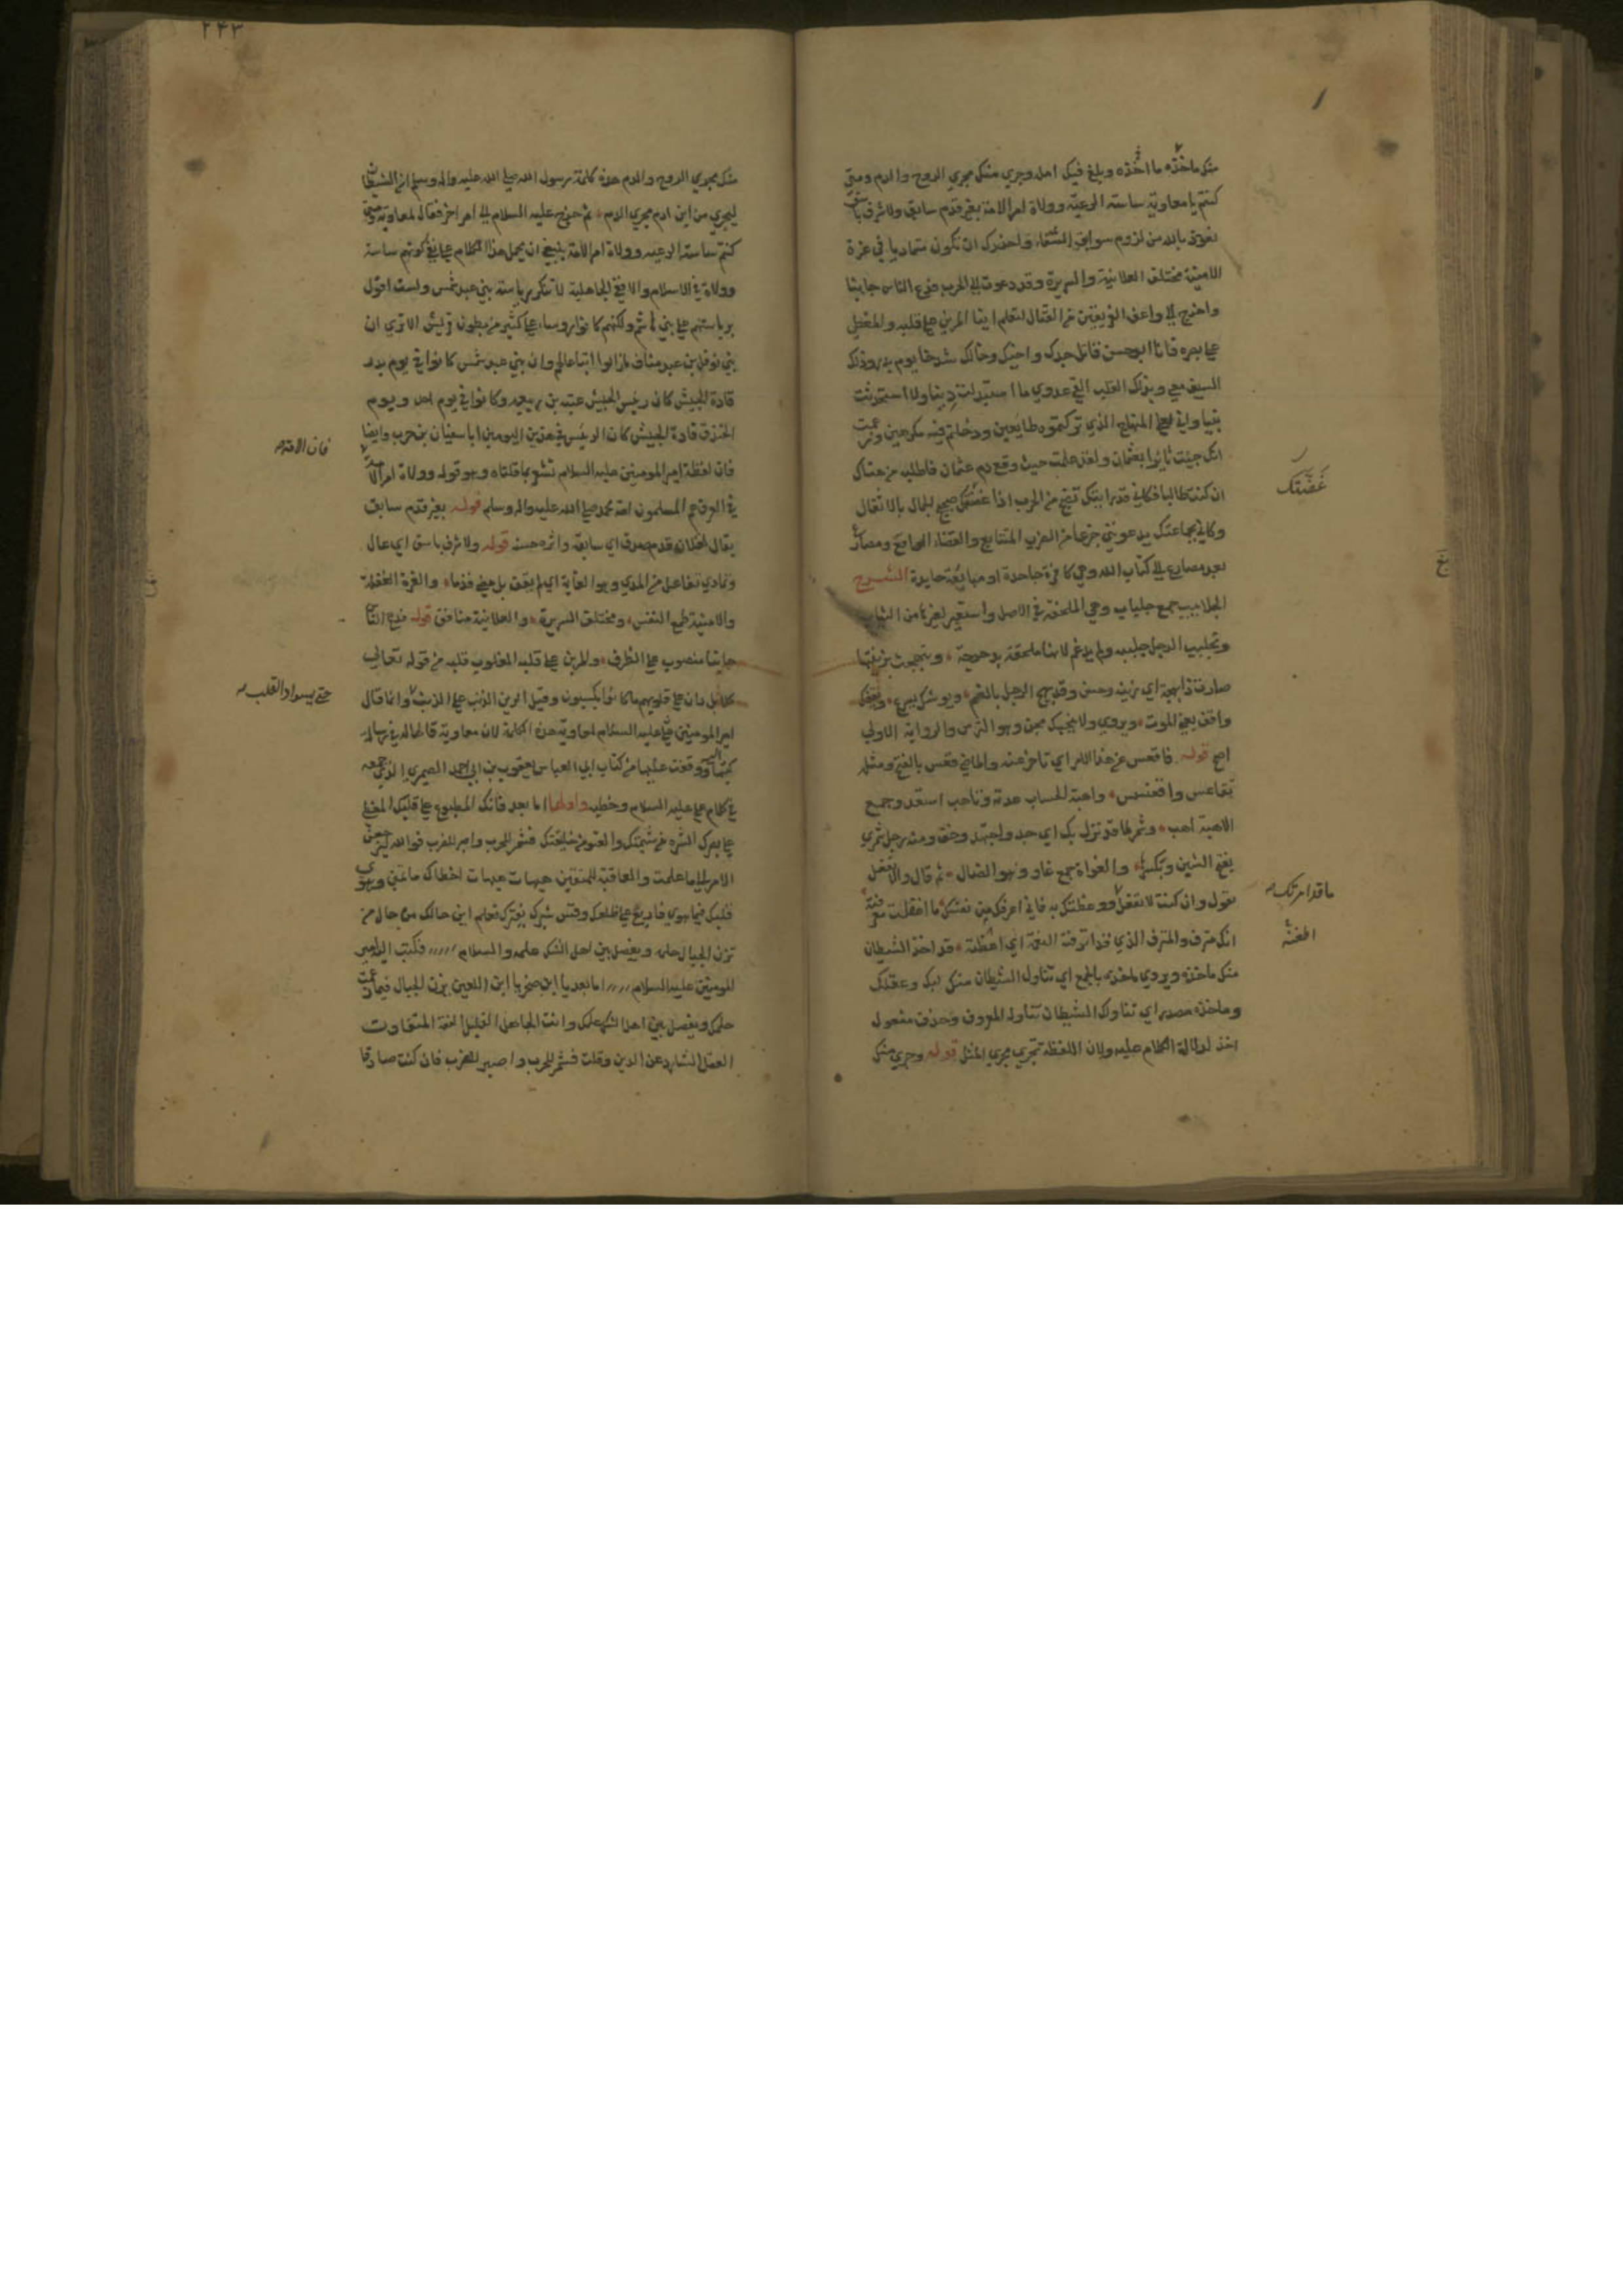 منك ماخذه ما اخذه وبلغ فيك امله وجري منك مجري الروح والدم ومتي
كنتم يا معاوية ساسة الرعية وولاة امر الامة بغير قدم سابق ولا شرف باسق
نعوذ بالله من لزوم سوابق الشقاء واحذرك ان تكون متماديا في غرة
الامنية مختلف العلانية والسريرة وقد دعوت الي الحرب فدع الناس جانبا
واخرج الي واعف الفريقين من القتال لتعلم اينا المرين علي قلبه والمغطي
علي بصره فانا ابو حسن قاتل جدك واخيك وخالك شدخا يوم بدر وذلك
السيف معي وبذلك القلب القي عدوي ما استبدلت دينا ولا استحدثت
نبيا واني لعلي المنهاج الذي تركتموه طايعين ودخلتم فيه مكرهين وزعمت
انك جيت ثايرا بعثمان ولقد علمت حيث وقع دم عثمان فاطلبه من هناك
ان كنت طالبا فكاني قد رايتك تضج من الحرب اذا عضتك ضجيج الجمال بالاثقال
وكاني بجماعتك يدعونني جزعا من الضرب المتتابع والقضاء الواقع ومصارع
بعد مصارع الي كتاب الله وهي كافرة جاحدة او مبايعة حايدة الشرح
الجلابيب جمع جلباب وهي الملحفة في الاصل واستعير لغيرها من الثياب
وتجلبب الرجل جلببه ولم يدغم لانها ملحقة بدحرجة وتبهجت بزينتها
صارت ذا بهجة اي زينة وحسن وقد بهج الرجل بالضم ويوشك يسرع ويقفك
واقف يعني الموت ويروي ولا ينجيك مجن وهو الترس والرواية الاولي
اصح قوله فاقعس عن هذا الامر اي تاخر عنه والماضي قعس بالفتح ومثله
تقاعس واقعنسس واهبة الحساب عدته وتاهب استعد وجمع
الاهبة اهب وشمر لما قد نزل بك اي جد واجتهد وخف ومنه رجل شمري
بفتح الشين وبكسرها والغواة جمع غاو وهو الضال ثم قال والا تفعل
يقول وان كنت لا تفعل ما قد امرتك ووعظتك به فاني اعرفك من نفسك ما اغفلت معرفته
انك مترف والمترف الذي قد اترفته النعمة اي اطغته قد اخذ الشيطان
منك ماخذه ويروي ماخذه بالجمع اي تناول الشيطان منك لبك وعقلك
وماخذه مصدر اي تناولك الشيطان تناوله المعروف وحذف مفعول
اخذ لدلالة الكلام عليه ولان اللفظة تجري مجري المثل قوله وجري منك
غَضَّتك
ما قد امرتك
اطغته
٢٤٣
منك مجري الروح والدم هذه كلمة رسول الله صلي الله عليه واله وسلم ان الشيطان
ليجري من ابن ادم مجري الدم ثم خرج عليه السلام الي امر اخر فقال لمعاوية ومتي
كنتم ساسة الرعية وولاة امر الامة ينبغي ان يحمل هذا الكلام علي نفي كونهم ساسة
وولاة في الاسلام والا ففي الجاهلية لا تنكر رياسة بني عبد شمس ولست اقول
برياستهم علي بني هاشم ولكنهم كانوا روساء علي كثير من بطون قريش الا تري ان
بني نوفل بن عبد مناف مازالوا اتباعا لهم وان بني عبد شمس كانوا في يوم بدر
قادة الجيش كان رئيس الجيش عتبة بن ربيعه وكانوا في يوم احد ويوم
الخندق قادة الجيش كان الرئيس في هذين اليومين ابا سفيان بن حرب وايضا
فان لفظة امير المومنين عليه السلام تشعر بما قلناه وهو قوله وولاة امر الامة
في العرف هم المسلمون امة محمد صلي الله عليه واله وسلم قوله بغير قدم سابق
يقال لفلان قدم صدق اي سابقة واثره حسنه قوله ولا شرف باسق اي عال
وتمادي تفاعل من المدي وهو الغاية اي لم يقف بل مضي قدما والغرة الغفلة
والامنية طمع النفس ومختلف السريرة والعلانية منافق قوله فدع الناس
جانبا منصوب علي الظرف والمرين علي قلبه المغلوب قلبه من قوله تعالي
كلا بل ران علي قلوبهم ما كانوا يكسبون وقيل الرين الذنب علي الذنب وانما قال
امير المومنين علي عليه السلام لمعاوية هذه الكلمة لان معاوية قالها له في رسالة
كتبها اليه ووقفت عليها من كتاب ابي العباس يعقوب بن ابي احمد الصيمري الذي جمعه
في كلام علي عليه السلام وخطبه واولها اما بعد فانك المطبوع علي قلبك المغطي
علي بصرك الشره من شيمتك والعتو من خليقتك فشمر للحرب واصبر للضرب فوالله ليرجعن
الامر الي ما علمت والعاقبة للمتقين هيهات هيهات اخطاك ما تمني وهوي
قلبك فيما هوي فاربع علي ظلعك وقس شبرك بفترك تعلم اين حالك من حال من
تزن الجبال حلمه ويفصل بين اهل الشك علمه والسلام فكتب اليه امير
المومنين عليه السلام اما بعد يا ابن صخر يا ابن اللعين يزن الجبال فيما زعمت
حلمك ويفصل بين اهل الشك علمك وانت الجاهل القليل الفقه المتفاوت
العقل الشارد عن الدين وقلت فشمر للحرب واصبر للضرب فان كنت صادقا
فان الامة
حتي يسواد القلب